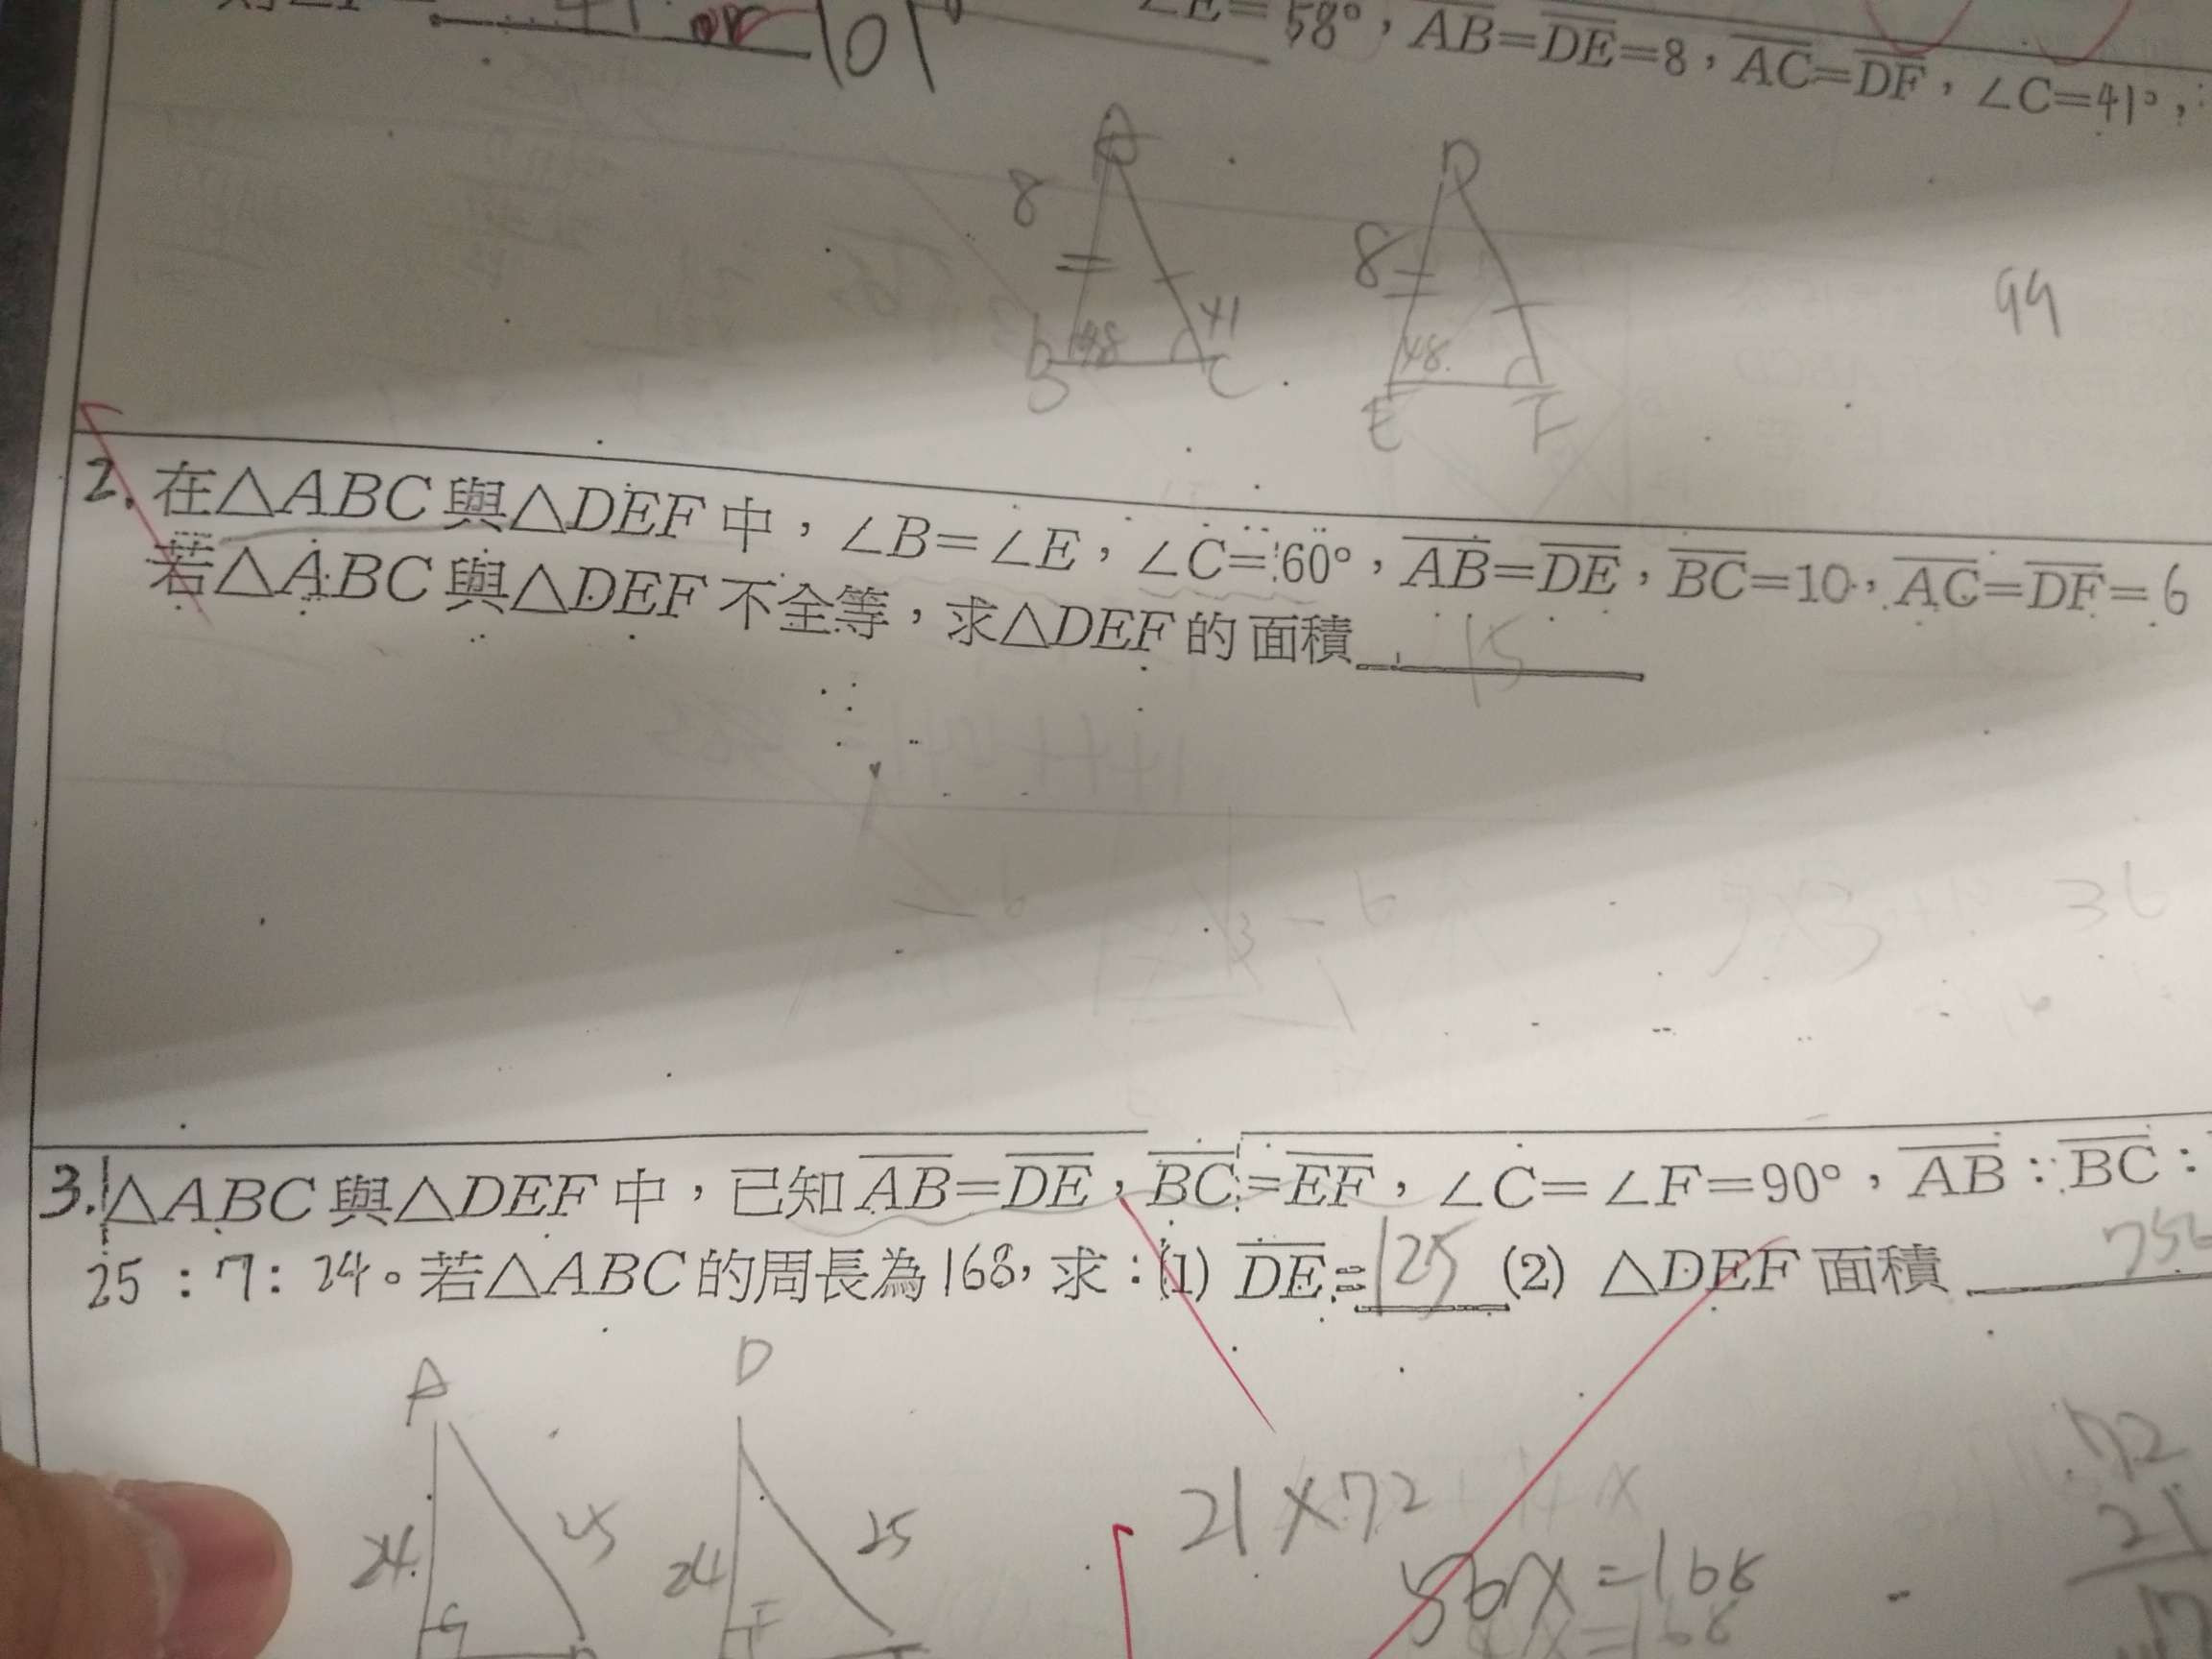 or 101°
∠E=58°，AB=DE=8，AC=DF，∠C=41°，
A D
8 8 99
41
B 48 C 48
E F
2. 在△ABC與△DEF中，∠B=∠E，∠C=60°，AB=DE，BC=10，AC=DF=6
若△ABC與△DEF不全等，求△DEF的面積 15
3. △ABC與△DEF中，已知AB=DE，BC=EF，∠C=∠F=90°，AB：BC：
25：7：24。若△ABC的周長為168，求：(1) DE=125 (2) △DEF面積 756
A D
21×72 72
24 25 24 25 56x=168 21
F x=168